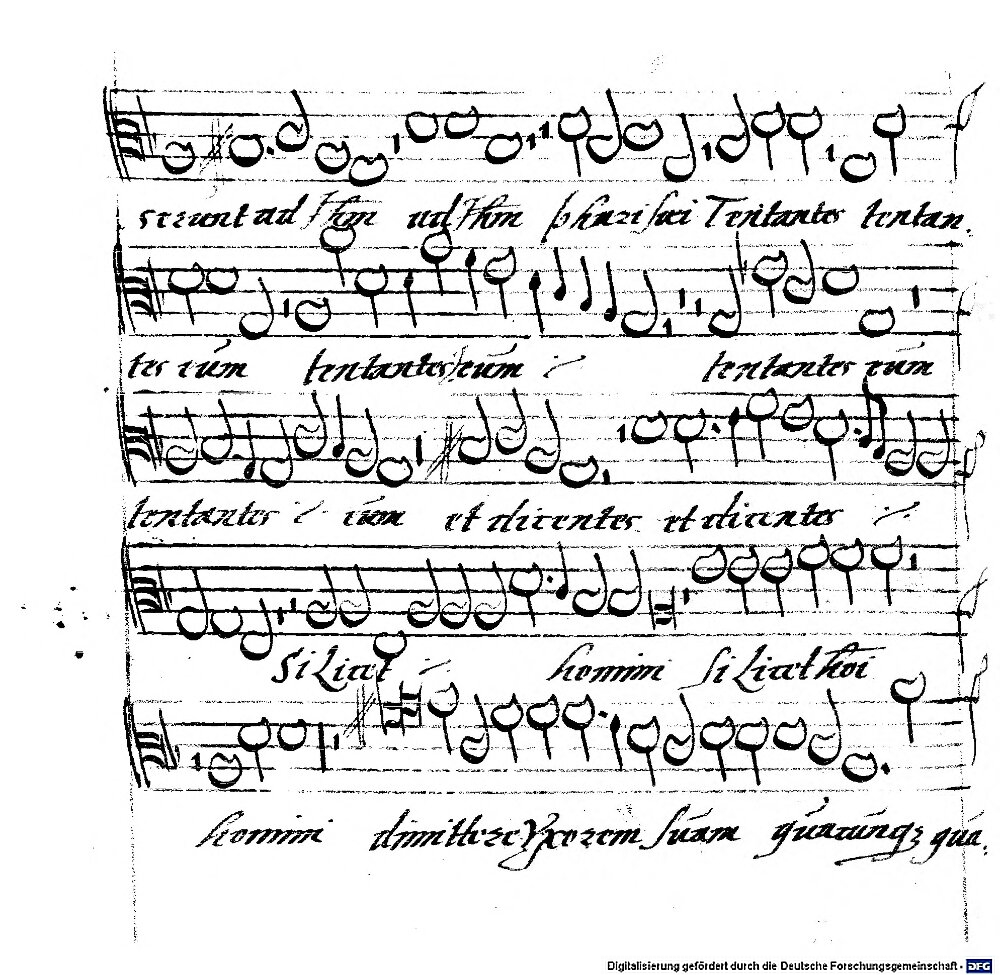 serunt ad Jhm ad Jhm pharisaei Tentantes tentan.
tes eum tentantes eum tentantes eum
tentantes eum et dicentes et dicentes
Si Licet homini si Licet hoi
homini dimittere Uxorem suam quacunq3 qua.
Digitalisierung gefördert durch die Deutsche Forschungsgemeinschaft - DFG